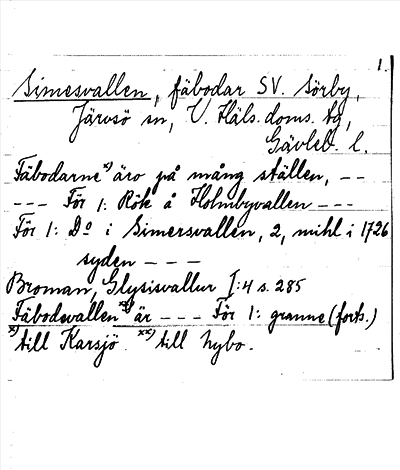 1.
Simesvallen, fäbodar SV. Sörby,
Järvsö sn, V. Häls. doms. tg,
Gävleb. l.
Fäbodarne x) äro på mång ställen, - -
- - - För 1: Rök å Holmbyvallen - - -
För 1: Do i Simersvallen, 2, mihl i 1726
syden - - -
Broman, Glysisvallur I:4 s. 285
Fäbodevallen xx) är - - - För 1: granne (forts.)
x) till Karsjö. xx) till Nybo.